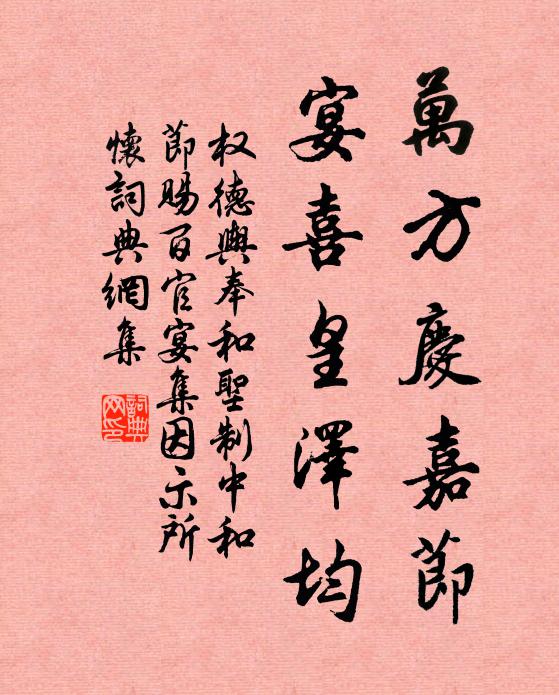 萬方慶嘉節
宴喜皇澤均
权德輿奉和聖制中和
節賜百官宴集因示所
懷詞典網集
詞典
网印